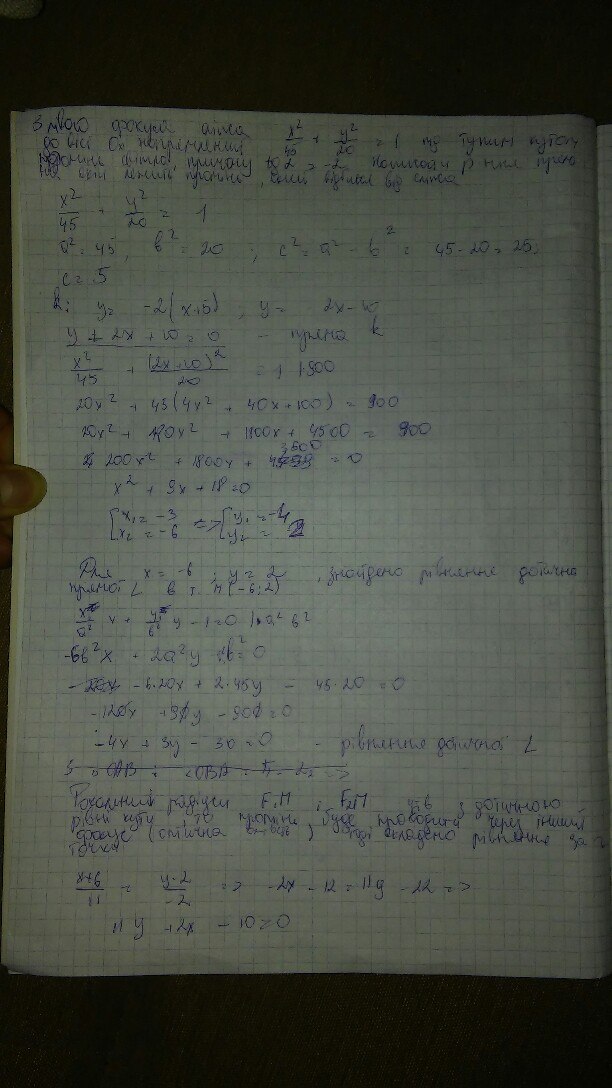 З лівого фокуса еліпса x²/45 + y²/20 = 1 під тупим кутом
до вісі Ox напрямлений
промінь світла, причому tg α = -2. Написати р-ння прямої
на якій лежить промінь, відбитий від еліпса
x²/45 + y²/20 = 1
a² = 45, b² = 20 ; c² = a² - b² = 45-20 = 25,
c = 5
k: y = -2(x+5) ; y = -2x-10
y + 2x + 10 = 0 - пряма k
x²/45 + (2x+10)²/20 = 1 | ·900
20x² + 45(4x² + 40x+100) = 900
20x² + 180x² + 1800x + 4500 = 900
200x² + 1800x + 3600 = 0
x² + 9x + 18 = 0
[x₁ = -3 x₂ = -6 => [y₁ = -4 y₂ = 2
Для x = -6 ; y = 2, знайдемо рівняння дотичної
прямої L в т. M(-6;2)
-6b²x + 2a²y = 0
-6·20x + 2·45y - 45·20 = 0
-120x + 90y - 900 = 0
-4x + 3y - 30 = 0 - рівняння дотичної L
Фокальний радіуси F₁M і F₂M з дотичною
рівні кути, то промінь буде проходити через інший
фокус (оптична ) складемо рівняння за
точка
x+6/11 = y-2/-2 => -2x - 12 = 11y - 22 =>
11y + 2x - 10 = 0